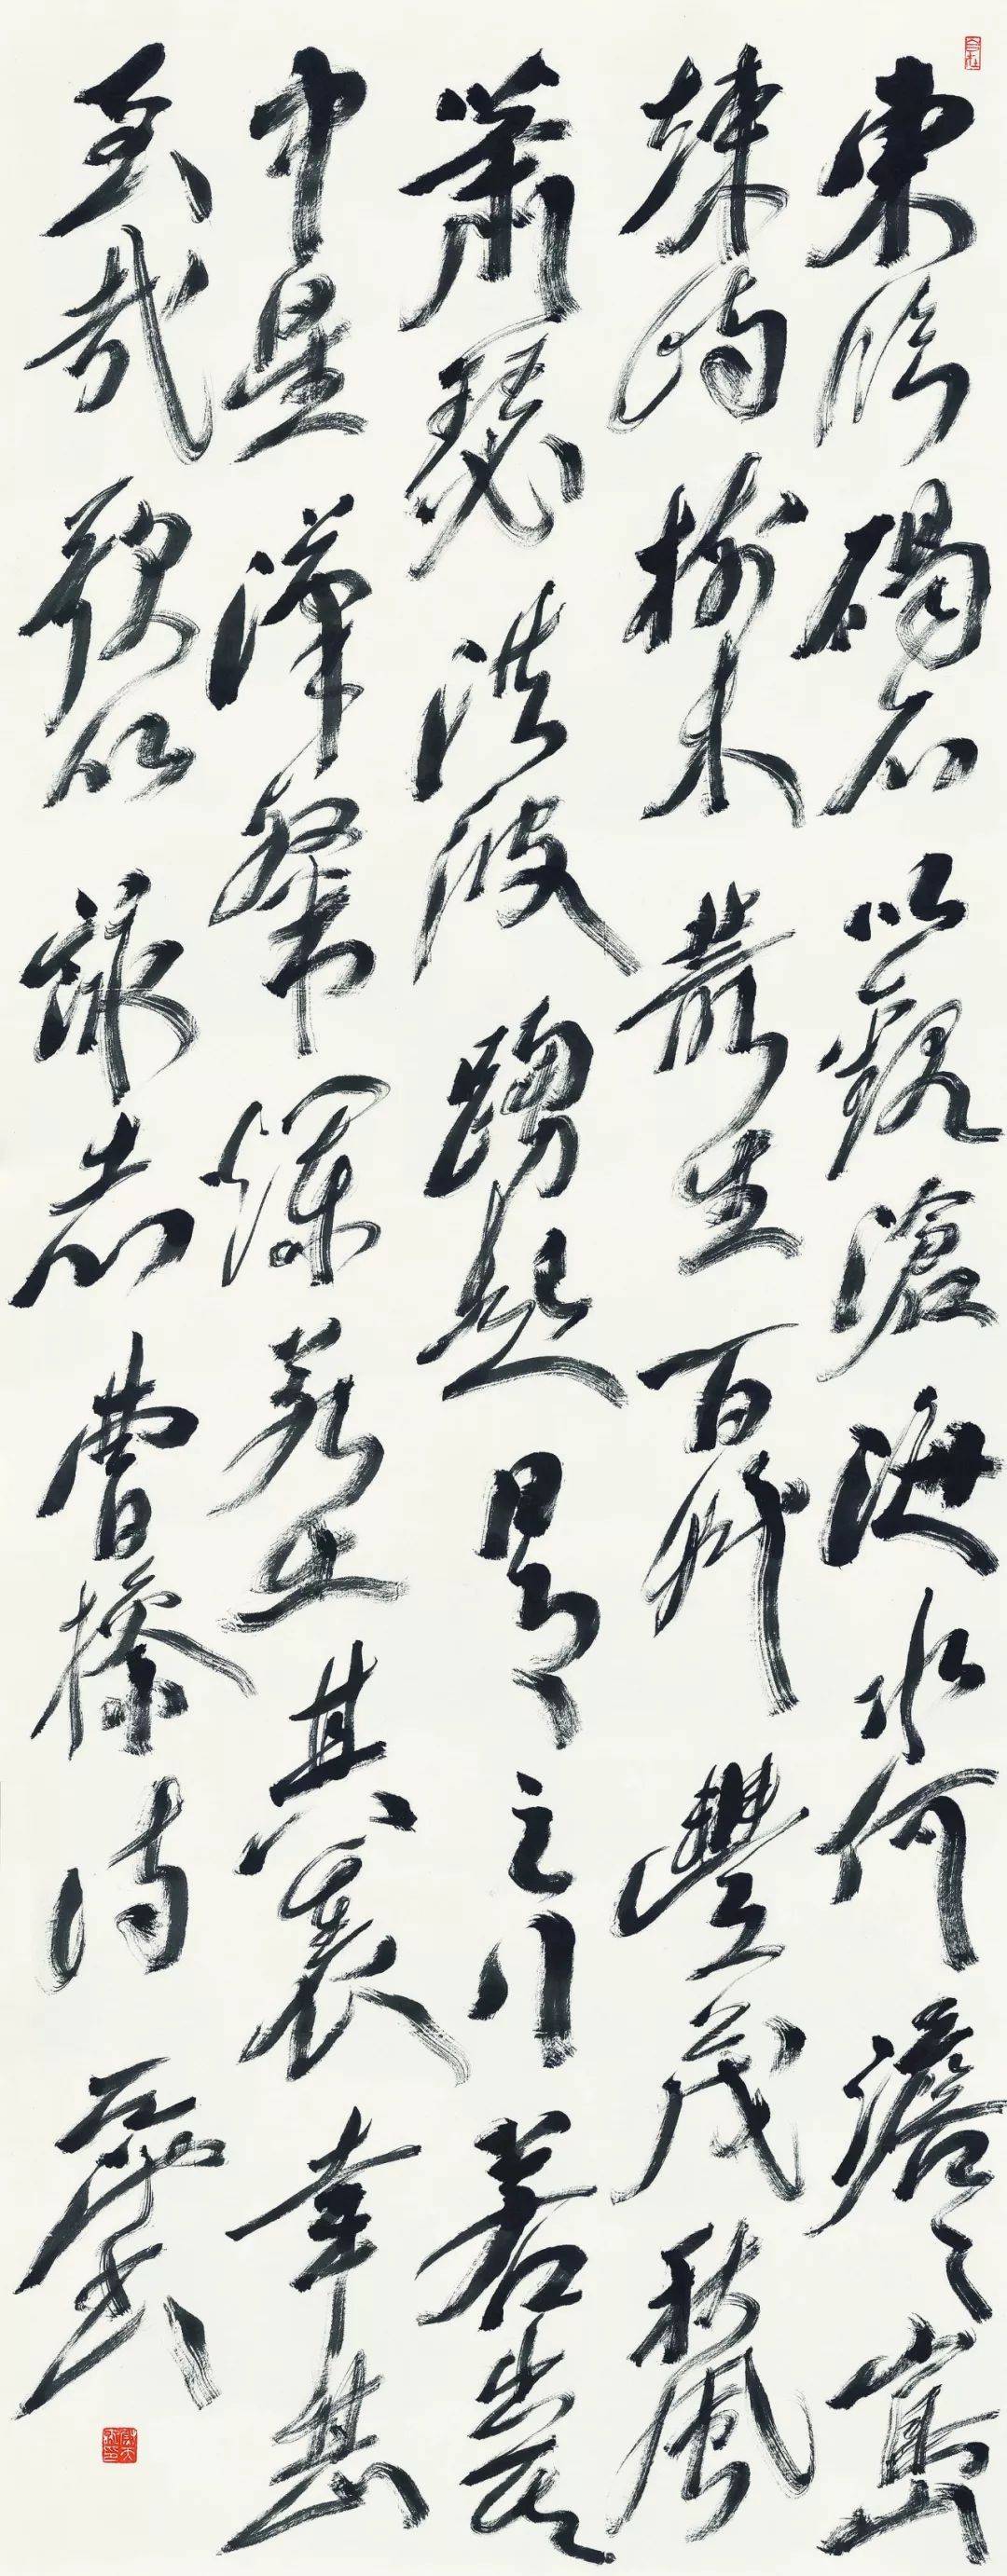 東臨碣石以觀滄海水何澹〻山島
竦峙樹木叢生百艸豐茂秋風
蕭瑟洪波踴起日月之行若出其
中星漢粲爛若出其裏幸甚
至哉歌以詠志曹操詩